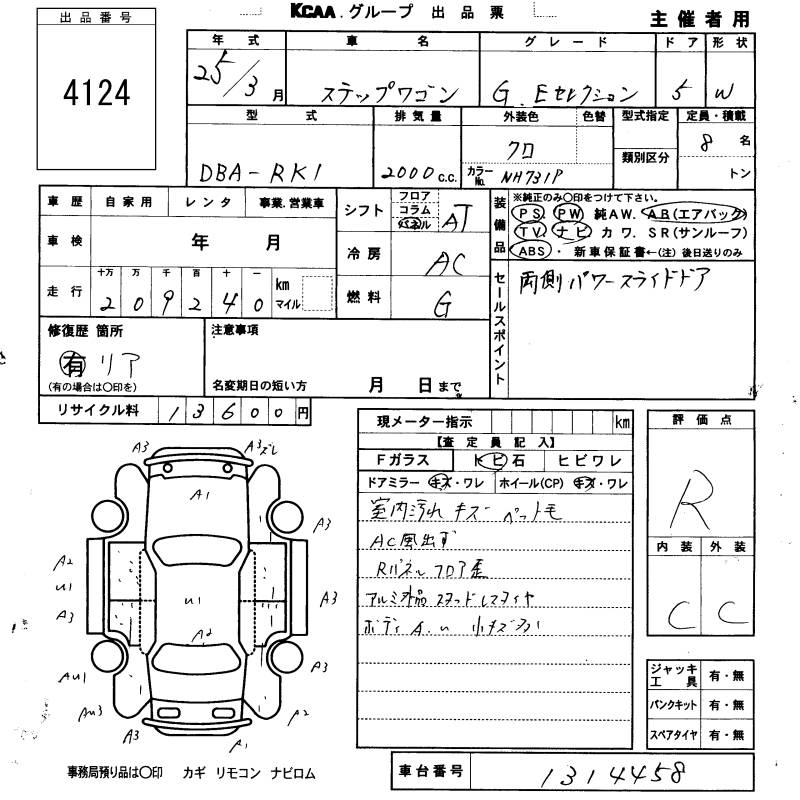 KCAA.グループ 出品票
主催者用
出品番号
4124
年式 車名 グレード ドア 形状
25/3月 ステップワゴン G.Eセレクション 5 W
型式 排気量 外装色 色替 型式指定 定員・積載
類別区分
DBA-RK1 2000c.c. クロ 8名
カラーNo. NH731P トン
車歴 自家用 レンタ 事業.営業車
シフト フロア コラム パネル AT
車検 年 月
冷房 AC
走行 十万 万 千 百 十 一 km マイル
209240
燃料 G
装備品 ※純正のみ〇印をつけて下さい。
PS. PW 純AW. AB(エアバック)
TV. ナビ カワ. SR(サンルーフ)
ABS . 新車保証書←(注)後日送りのみ
セールスポイント 両側パワースライドドア
修復歴 箇所
有 リア
(有の場合は〇印を)
注意事項
名変期日の短い方 月 日まで
リサイクル料 13600円
現メーター指示 km
【査定員記入】
Fガラス トビ石 ヒビワレ
ドアミラー キズ・ワレ ホイール(CP) キズ・ワレ
室内汚れ キズ ペット毛
AC風出ず
Rパネル フロア歪
アルミ欠品 スタッドレスタイヤ
ボディA.U 小キズ
評価点
R
内装 外装
C C
ジャッキ工具 有・無
パンクキット 有・無
スペアタイヤ 有・無
A3 A3ズレ
A1
A3
A2
U1
A3
U1
A3
A2
A3
AU1
AU3
A2
A3
A1
事務局預り品は〇印 カギ リモコン ナビロム
車台番号 1314458